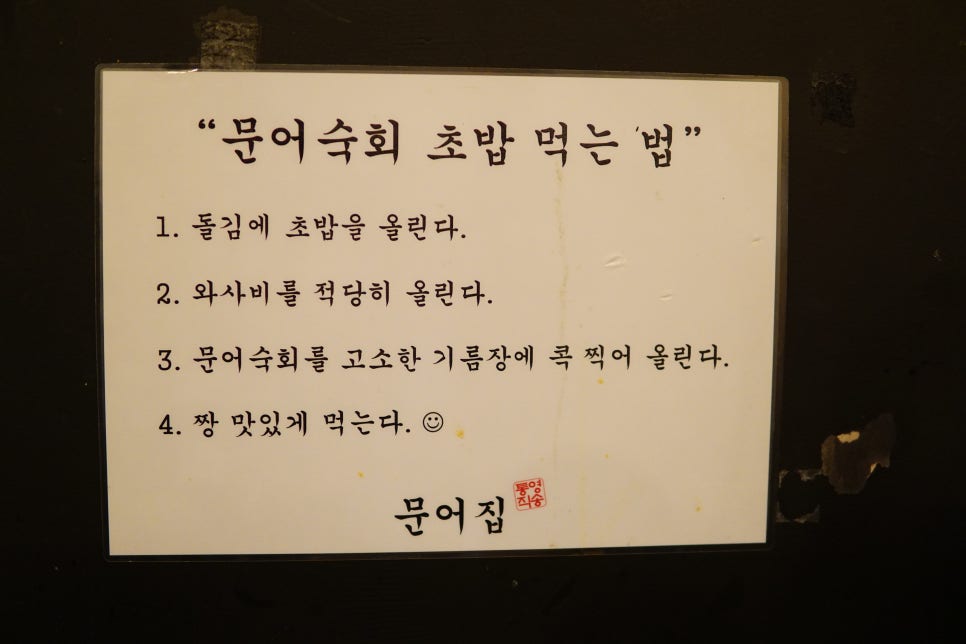 “문어숙회 초밥 먹는 법”
1. 돌김에 초밥을 올린다.
2. 와사비를 적당히 올린다.
3. 문어숙회를 고소한 기름장에 콕 찍어 올린다.
4. 짱 맛있게 먹는다. ☺
문어집
통영
직송